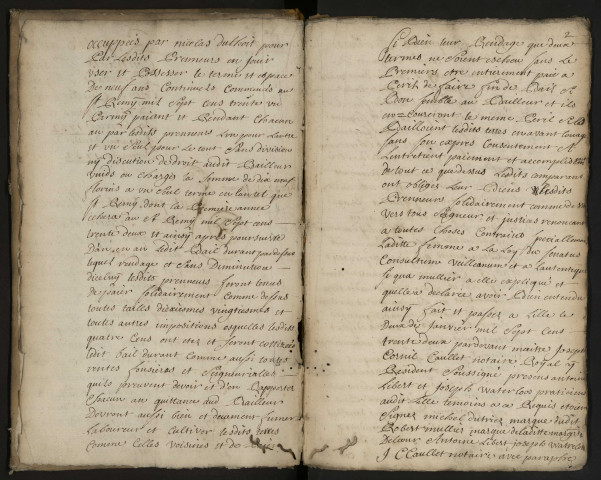 occuppées par nicolas dubois pour
Par lesdits Preneurs en jouir
user et Possesser le terme et espace
de neuf ans Continuels Commencés au
St Remy mil sept cens trente un
Parmy paiant et Rendant chacun
an par lesdits prenneurs l'un pour l'autre
et un seul pour le tout sans division
ny discution de droit audit Bailleur
la somme de dix neuf
florins a un seul terme en l'an tel que
St Remy dont la Premiere année
echera au St Remy mil sept cens
trente deux et ainsy aprés poursuivre
D'an en an ledit Bail durant pardessus
lequel rendage et sans diminution
dicelluy lesdits prenneurs seront tenus
de païer solidairement comme dessus
toutes tailles dixiesmes vingtiesmes et
toutes autres impositions
quatre cens ont esté et seront cottisés
ledit bail durant comme aussi toutes
rentes foncieres et Seigneurialles
quils peuvent devoir et d'en Rapporter
chacun an quittance aud Bailleur
Devront aussi bien et deuement fumer
Labourer et cultiver lesdites terres
comme celles voisines et de

2
Si bien leur Rendage que deux
termes ne soient escheus sans le
Premiers etre entierement païé a
Peril de faire fin de Bail Si
Bon semble au Bailleur et ils
encoureront le meme Peril si ils
Bailloient lesdites terres en avant louage
sans son exprés Consentement A
L'entretient paiement et accomplissement
de tout ce que dessus Lesdits comparants
ont obligés leur Biens lesdits
Prenneurs solidairement comme dessus
vers tous Seigneur et justices renonceant
a toutes choses Contraires speciallement
Laditte femme a La Loy du Senatus
Consultum velleanum et a L'autentique
si qua mullier a elle expliqué et
quelle a declarée avoir Bien entendu
ainsy fait et passés a Lille le
Deux de Janvier mil sept cens
trente deux pardevant maitre Joseph
Cornil Caullet notaire Royal y
Resident soussigné presens antoine
Libert et Joseph Waterlos praticiens
audit Lille temoins a ce Requis et etoient
signez michel dutriez marque dudit
Robert mullier marque de laditte
Delaux Antoine Libert Joseph Waterlos
J C Caullet notaire avec paraphe